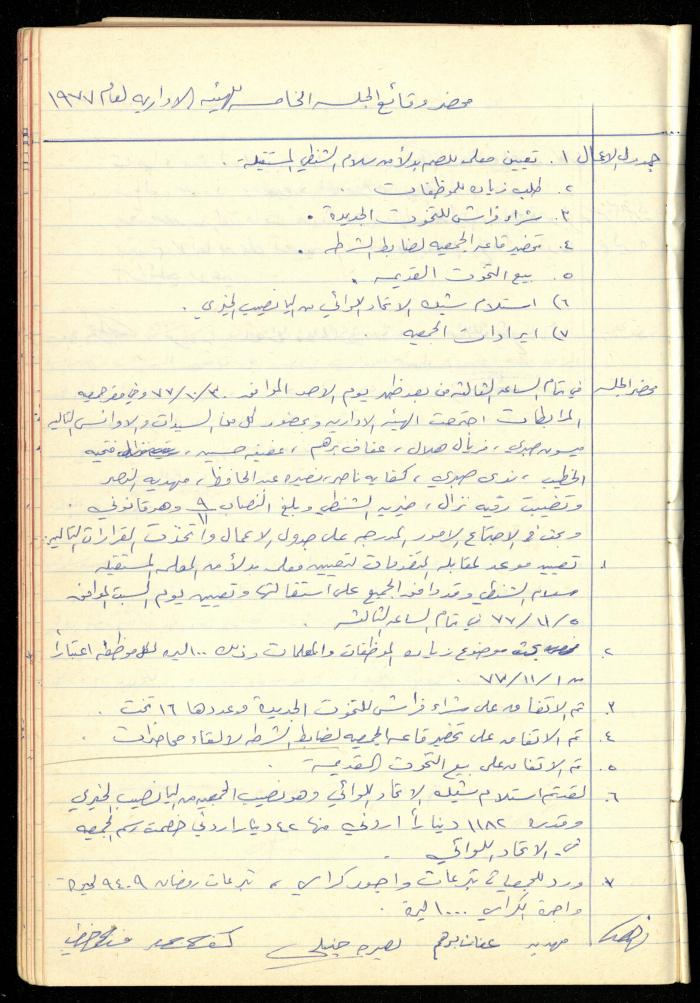 محضر وقائع الجلسه الخامسه للهيئه الاداريه لعام ١٩٧٧
جدول الاعمال ١. تعيين معلمه للصم بدلاً من سلام الشنطي المستقيلة .
٢. طلب زياده للموظفات .
٣. شراء فراش للتخوت الجديدة .
٤. تحضير قاعه الجمعيه لضابط الشرطه .
٥. بيع التخوت القديمه .
٦) استلام شيك الاتحاد اللوائي من اليانصيب الخيري .
٧) ايرادات الجمعيه
محضر الجلسه في تمام الساعه الثالثه من بعد ظهر يوم الاحد الموافق ٧٧/١٠/٣٠ وفي مقر جمعيه
المرابطات اجتمعت الهيئه الاداريه وبحضور كل من السيدات والاوانس التاليه
ميسون صبري ، فريال هلال ، عفاف برهم ، عفيفه حسين ، فتحيه
الخطيب ، ندى صبري ، كفايه ناصر ، نصيره عبد الحافظ ، مهديه النصر
وتغيبت رقيه نزال ، خيريه الشنطي وبلغ النصاب ٩/١١ وهو قانوني .
وبحث في الاجتماع الامور المدرجه على جدول الاعمال واتخذت القرارات التاليه:
١ تعيين موعد لمقابله المتقدمات لتعيين معلمه بدلاً من المعلمه المستقيله
سلام الشنطي وقد وافق الجميع على استقالتها وتعيين يوم السبت الموافق
٧٧/١١/٥ في تمام الساعه الثالثه .
٢. بحث موضوع زياده الموظفات والمعلمات وذلك ١٠٠ ليره لكل موظفه اعتباراً
من ٧٧/١١/١ .
٣. تم الاتفاق على شراء فراش للتخوت الجديدة وعددها ١٦ تخت .
٤. تم الاتفاق على تحضير قاعه الجمعيه لضابط الشرطه لالقاء محاضرات .
٥. تم الاتفاق على بيع التخوت القديمة .
٦. لقد تم استلام شيك الاتحاد اللوائي وهو نصيب الجمعيه من اليانصيب الخيري
وقدره ١١٨٢ ديناراً اردني منها ٤٢ دينار اردني خصمت رسم الجمعيه
في الاتحاد اللوائي .
٧ ورد للجمعيه تبرعات واجور كراسي ، تبرعات رمضان ٩٤٠٩ ليرة
واجرة الكراسي ١٠٠٠ ليرة .
مهديه عفاف برهم نصيره